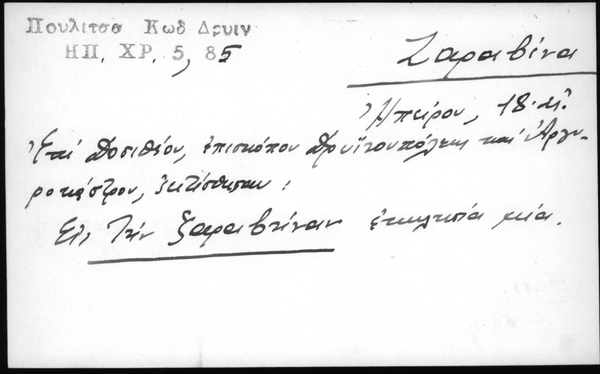 Πουλιτσσ Κωδ Δρυιν
ΗΠ. ΧΡ. 5, 85
Ζαραβίνα
Ἠπείρου, 18. αἰ.
Ἐπί Δοσιθέου, ἐπισκόπου Δρυϊνουπόλεως καί Ἀργυ-
ροκάστρου, ἐκτίσθησαν :
Εἰς τήν Ζαραβίναν ἐκκλησία μία.